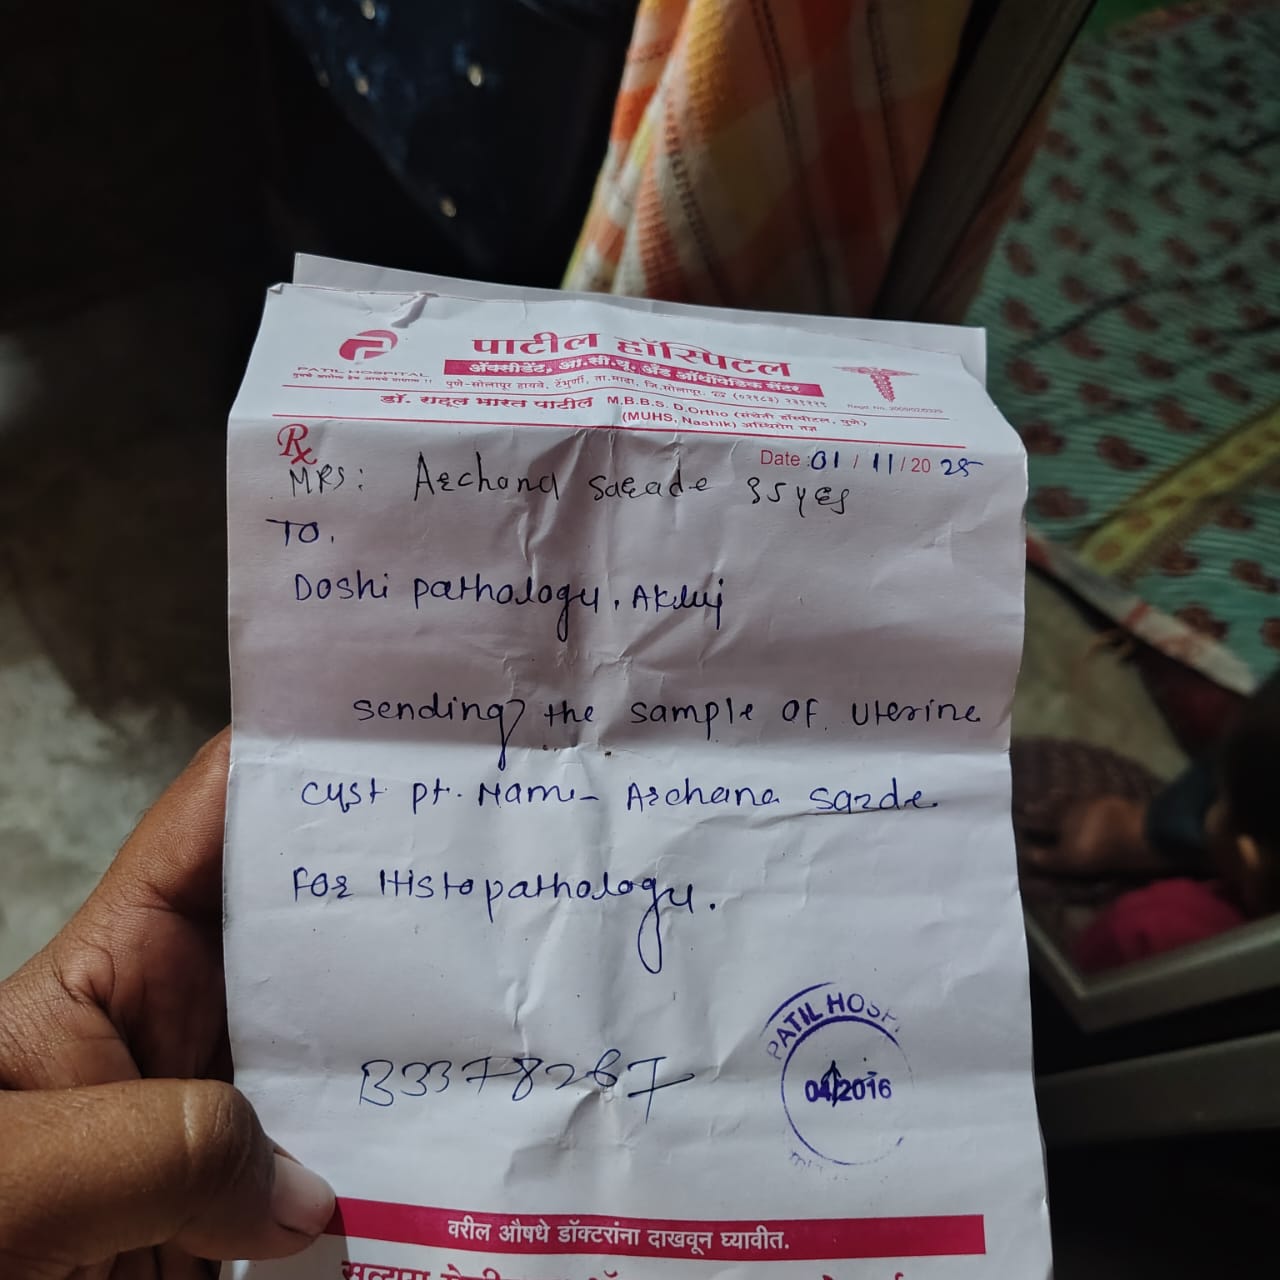 पाटील हॉस्पिटल
ॲक्सीडेंट, आ.सी.यू. ॲंड ऑर्थोपेडिक सेंटर
PATIL HOSPITAL
पुणे-सोलापूर हायवे, टेंभुर्णी, ता.माढा, जि.सोलापूर.
डॉ. राहूल भारत पाटील M.B.B.S. D.Ortho (संचेती हॉस्पीटल, पुणे)
(MUHS, Nashik) अस्थिरोग तज्ञ
Rx
Date : 01 / 11 / 20 25
MRS: Archana Sarade 35 yrs
TO,
Doshi pathology, Akluj
sending the sample of uterine
cyst pt. Name- Archana Sarde
For Histopathology.
B3378267
PATIL HOSPI
04/2016
वरील औषधे डॉक्टरांना दाखवून घ्यावीत.